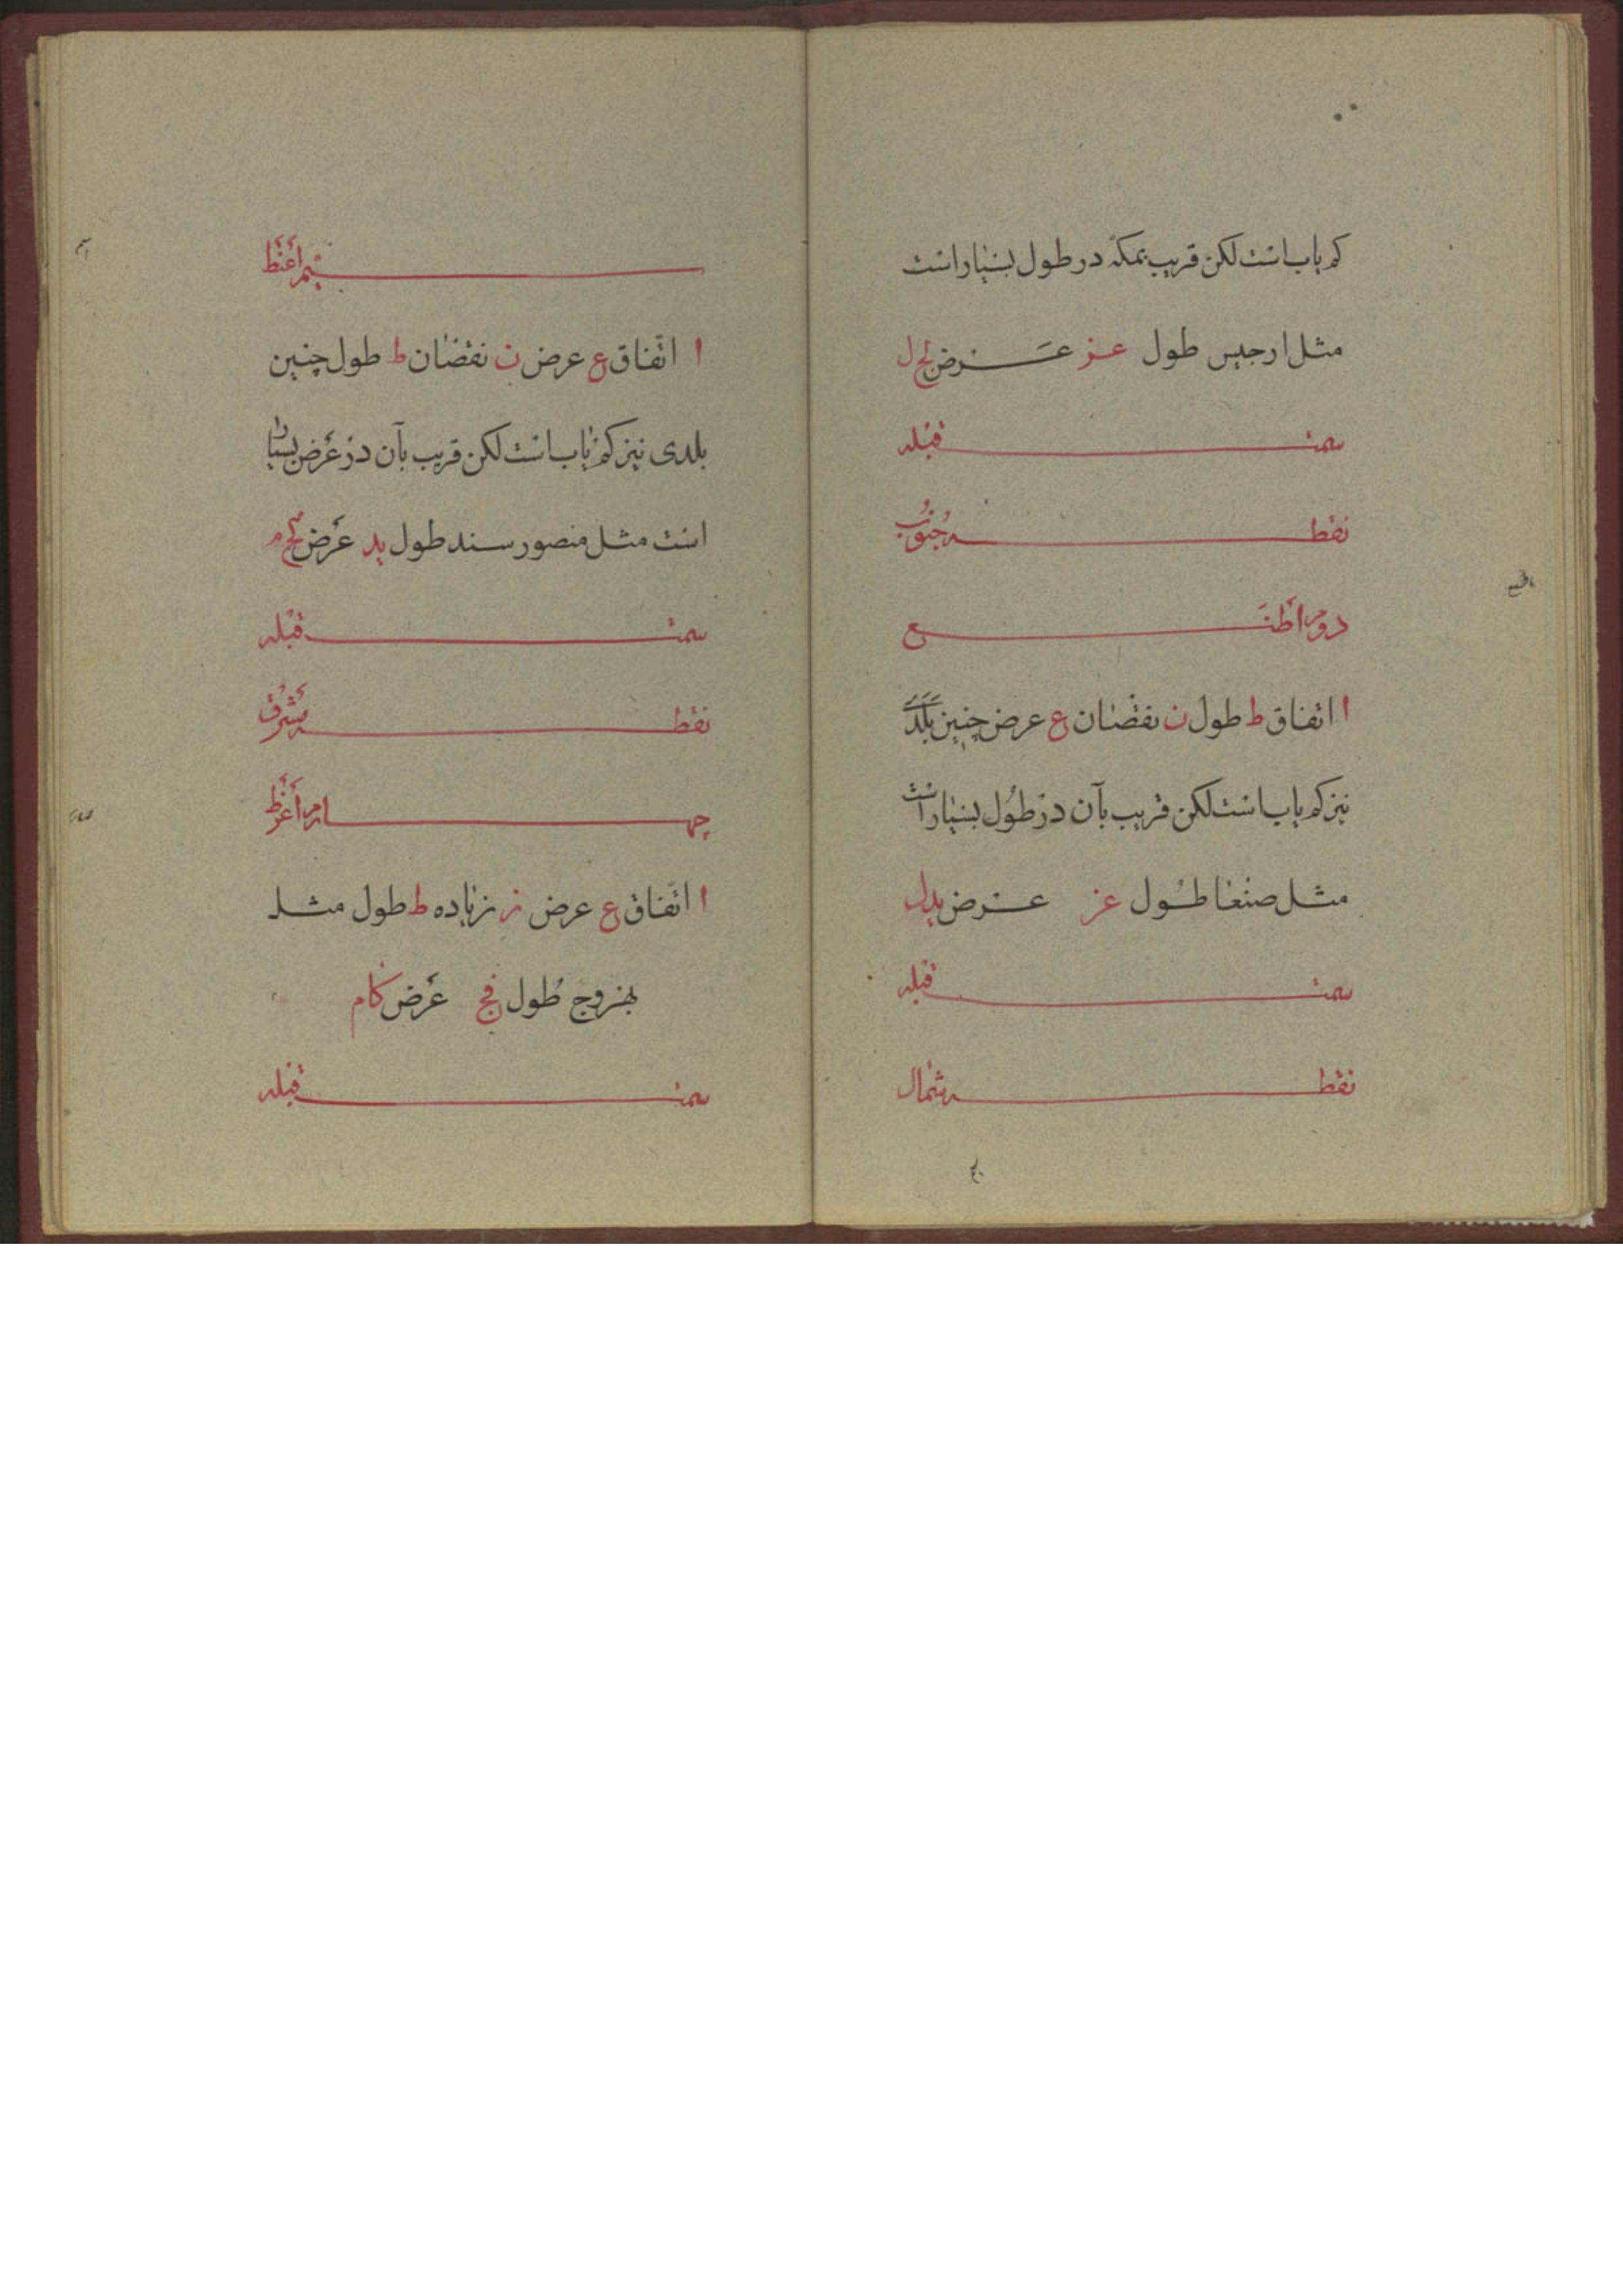 کم یاب است لکن قریب بمکه در طول بسیار است
مثل ارجیس طول عز عرض لح ل
سمت قبله
نقطه جنوب
دویم اطنع
ا اتفاق ط طول ن نقصان ع عرض چنین بلدی
نیز کم یاب است لکن قریب بآن در طول بسیار است
مثل صنعا طول عز عرض ید ل
سمت قبله
نقطه شمال
سیم اعنط
ا اتفاق ع عرض ن نقصان ط طول چنین
بلدی نیز کم یاب است لکن قریب بآن در عرض بسیار
است مثل منصور سند طول عرض
سمت قبله
نقطه مشرق
چهارم اعزط
ا اتفاق ع عرض ز زیاده ط طول مثل
بهروج طول عرض کا م
سمت قبله